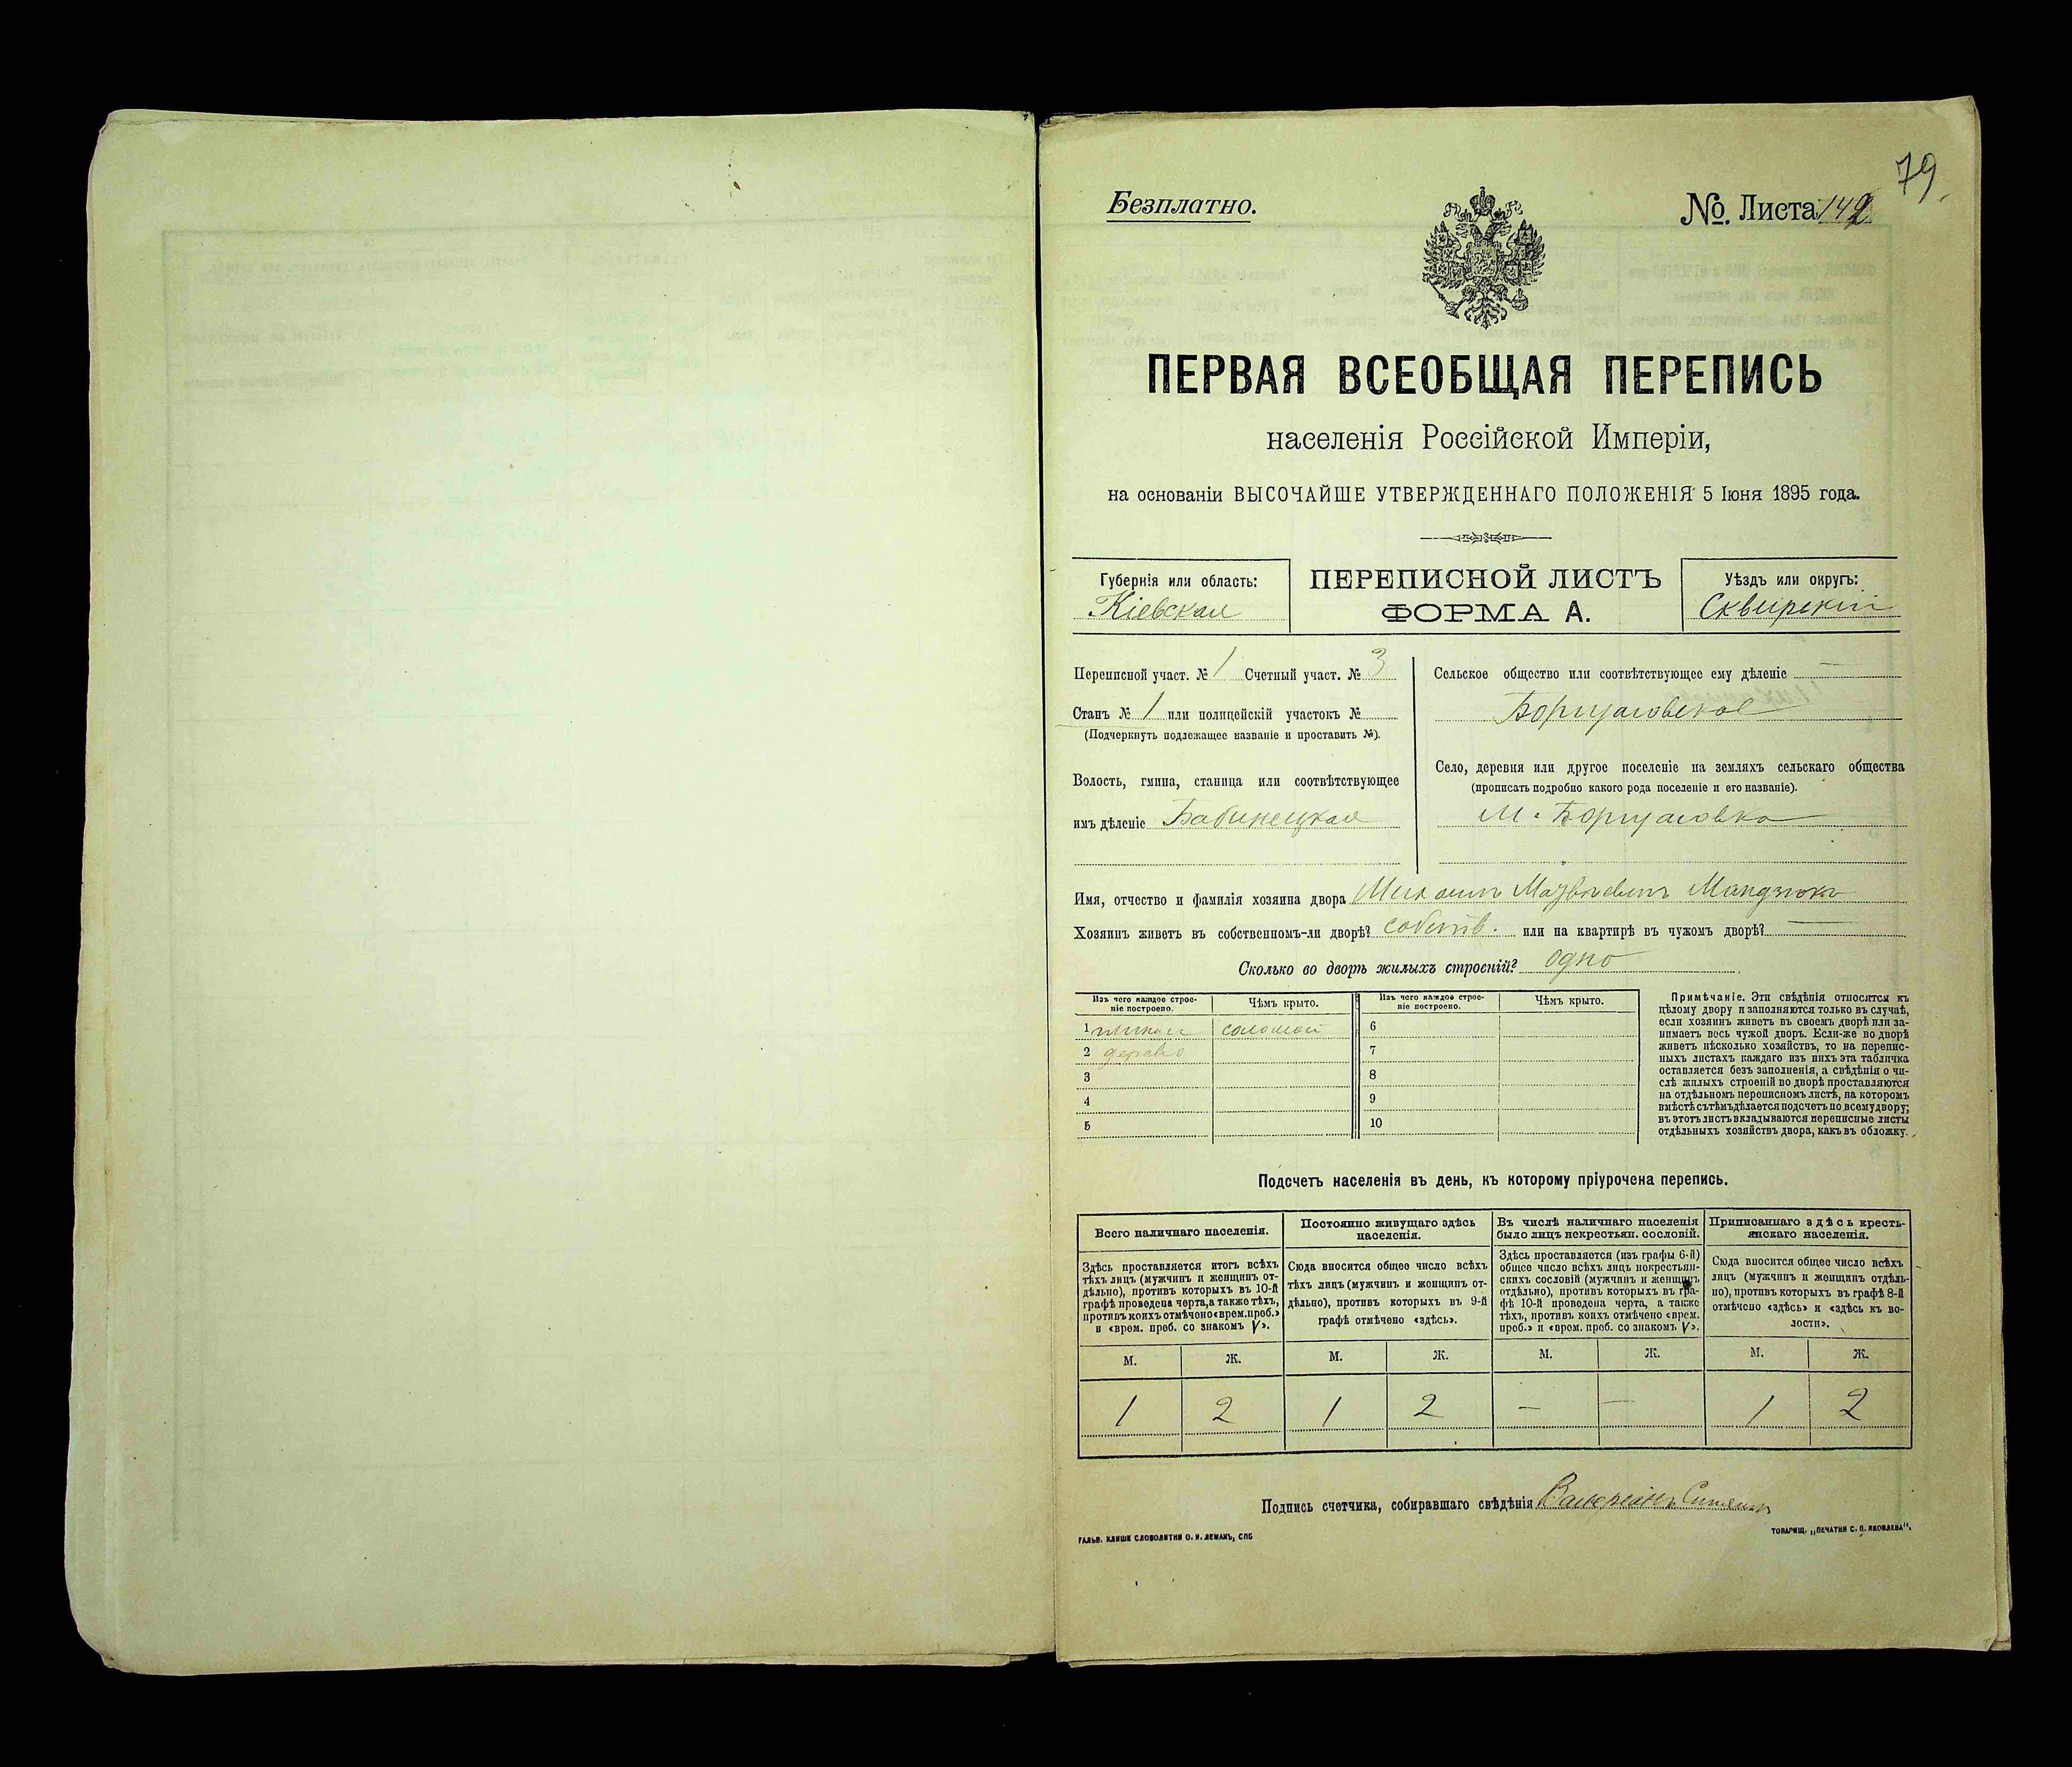 79.
Безплатно.
№ Листа 142
ПЕРВАЯ ВСЕОБЩАЯ ПЕРЕПИСЬ
населенія Россійской Имперіи,
на основаніи ВЫСОЧАЙШЕ УТВЕРЖДЕННАГО ПОЛОЖЕНІЯ 5 Іюня 1895 года.
Губернія или область:
Кіевская
ПЕРЕПИСНОЙ ЛИСТЪ
ФОРМА А.
Уѣздъ или округъ:
Сквирскій
Переписной участ. № 1 Счетный участ. № 3
Станъ № 1 или полицейскій участокъ №
(Подчеркнуть подлежащее названіе и проставить №).
Волость, гмина, станица или соотвѣтствующее
имъ дѣленіе Бабинецкая
Сельское общество или соотвѣтствующее ему дѣленіе —
Борщаговское
Село, деревня или другое поселеніе на земляхъ сельскаго общества
(прописать подробно какого рода поселеніе и его названіе).
М. Борщаговка
Имя, отчество и фамилія хозяина двора Михаилъ Матвѣевичъ Мандзюкъ
Хозяинъ живетъ въ собственномъ-ли дворѣ? собств. или на квартирѣ въ чужомъ дворѣ? —
Сколько во дворѣ жилыхъ строеній? одно
Изъ чего каждое строе-
ніе построено.
Чѣмъ крыто.
Изъ чего каждое строе-
ніе построено.
Чѣмъ крыто.
1 соломой 6
2 дерево 7
3 8
4 9
5 10
Примѣчаніе. Эти свѣдѣнія относятся къ
цѣлому двору и заполняются только въ случаѣ,
если хозяинъ живетъ въ своемъ дворѣ или за-
нимаетъ весь чужой дворъ. Если-же во дворѣ
живетъ нѣсколько хозяйствъ, то на перепис-
ныхъ листахъ каждаго изъ нихъ эта табличка
оставляется безъ заполненія, а свѣдѣнія о чи-
слѣ жилыхъ строеній во дворѣ проставляются
на отдѣльномъ переписномъ листѣ, на которомъ
вмѣстѣ съ тѣмъ дѣлается подсчетъ по всему двору;
въ этотъ листъ вкладываются переписные листы
отдѣльныхъ хозяйствъ двора, какъ въ обложку.
Подсчетъ населенія въ день, къ которому пріурочена перепись.
Всего наличнаго населенія.
Здѣсь проставляется итогъ всѣхъ
тѣхъ лицъ (мужчинъ и женщинъ от-
дѣльно), противъ которыхъ въ 10-й
графѣ проведена черта, а также тѣхъ,
противъ коихъ отмѣчено «врем. проб.»
и «врем. преб. со знакомъ V».
Постоянно живущаго здѣсь
населенія.
Сюда вносится общее число всѣхъ
тѣхъ лицъ (мужчинъ и женщинъ от-
дѣльно), противъ которыхъ въ 9-й
графѣ отмѣчено «здѣсь».
Въ числѣ наличнаго населенія
было лицъ некрестьян. сословій.
Здѣсь проставляется (изъ графы 6-й)
общее число всѣхъ лицъ некрестьян-
скихъ сословій (мужчинъ и женщинъ
отдѣльно), противъ которыхъ въ гра-
фѣ 10-й проведена черта, а также
тѣхъ, противъ коихъ отмѣчено «врем.
проб.» и «врем. проб. со знакомъ V».
Приписаннаго здѣсь кресть-
янскаго населенія.
Сюда вносится общее число всѣхъ
лицъ (мужчинъ и женщинъ отдѣль-
но), противъ которыхъ въ графѣ 8-й
отмѣчено «здѣсь» и «здѣсь къ во-
лости».
М. Ж. М. Ж. М. Ж. М. Ж.
1 2 1 2 — — 1 2
Подпись счетчика, собиравшаго свѣдѣнія Валеріанъ
ГАЛЬВ. КЛИШЕ СЛОВОЛИТНИ О. И. ЛЕМАНЪ, СПБ
ТОВАРИЩ. „ПЕЧАТНИ С. П. ЯКОВЛЕВА".